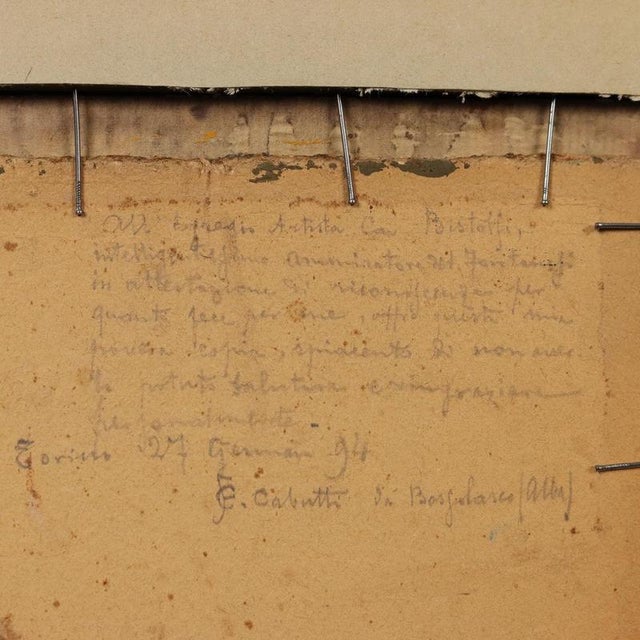 All Egregio Artista Cav Bistolfi,
intelligentissimo ammiratore del Fontanesi
in attestazione di riconoscenza per
quanto fece per me, offro questa mia
povera copia, spiacente di non aver
lo potuto salutare e ringraziare
personalmente.
Torino 27 Gennaio 94
C. Cabutti di Bossolasco (Alba)